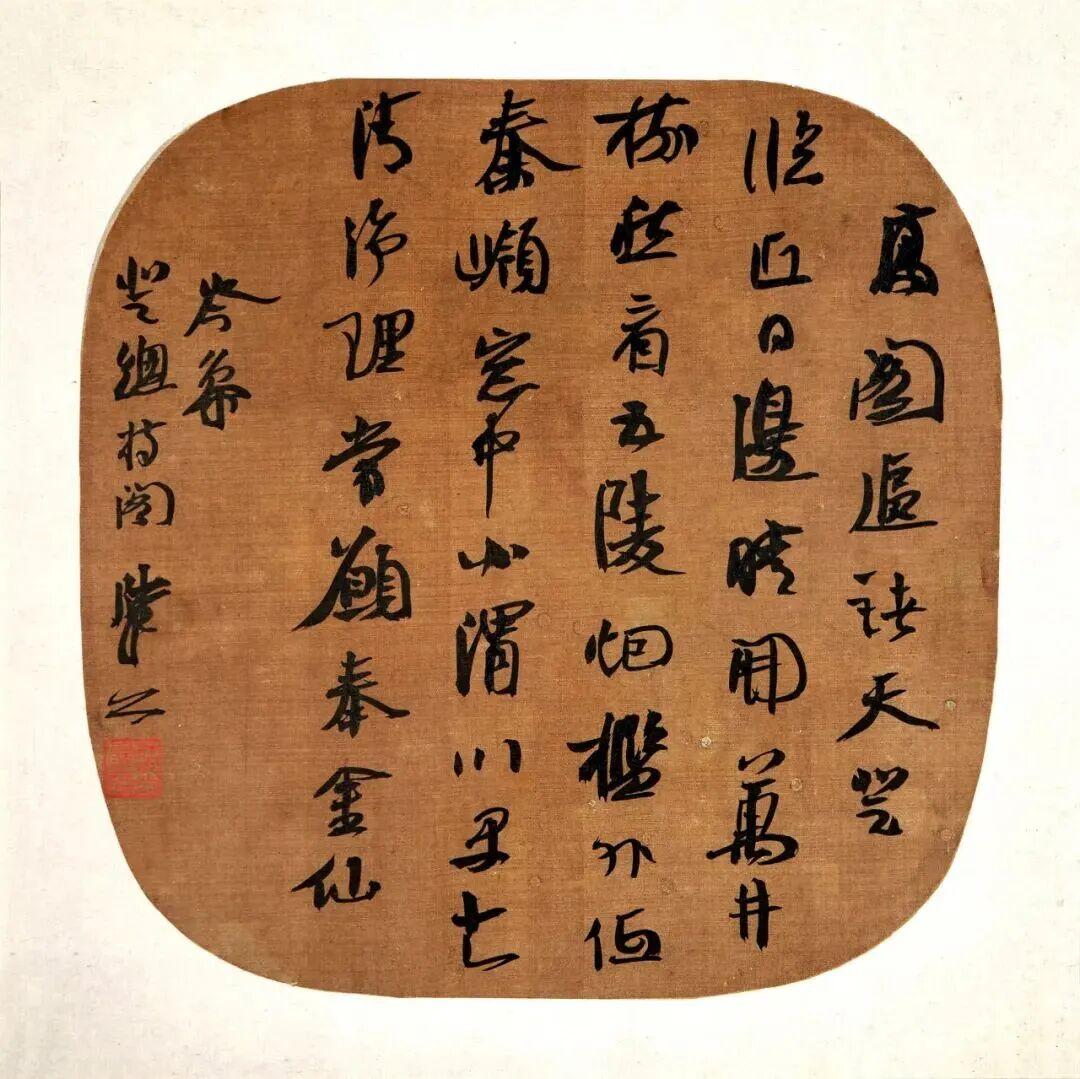 高閣逼諸天登
臨近日邊晴開萬井
樹愁看五陵烟檻外低
秦嶺窓中小渭川早知
清淨理常願奉金仙
岑參
登總持閣 之